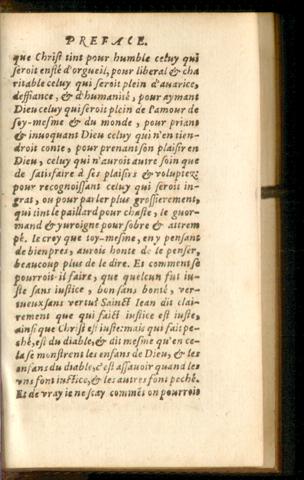 PREFACE.
que Christ tint pour humble celuy qui
seroit enflé d'orgueil, pour liberal & cha
ritable celuy qui seroit plein d'auarice,
deffiance, & d'humanité, pour aymant
Dieu celuy qui seroit plein de l'amour de
soy-mesme & du monde, pour priant
& inuoquant Dieu celuy qui n'en tien-
droit conte, pour prenant son plaisir en
Dieu, celuy qui n'auroit autre soin que
de satisfaire à ses plaisirs & voluptez:
pour recognoissant celuy qui seroit in-
grat, ou pour parler plus grossierement,
qui tint le paillard pour chaste, le gour-
mand & yuroigne pour sobre & attrem
pé. Ie croy que toy-mesme, en y pensant
de bien pres, aurois honte de le penser,
beaucoup plus de le dire. Et comment se
pourroit-il faire, que quelcun fut iu-
ste sans iustice, bon sans bonté, ver-
tueux sans vertu? Sainct Iean dit clai-
rement que qui faict iustice est iuste,
ainsi que Christ est iuste: mais qui fait pe-
ché, est du diable, & dit mesme qu'en ce-
la se monstrent les enfans de Dieu, & les
enfans du diable, c'est assauoir quand les
vns font iustice, & les autres font peché.
Et de vray ie ne sçay comment on pourroit